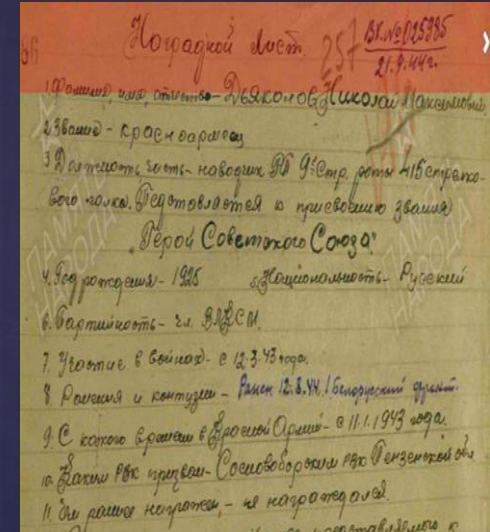 86
Наградной лист. 257 Вх.№025985
21.9.44г.
1. Фамилия, имя, отчество - Дьяконов Николай Максимович.
2. Звание - красноармеец
3. Должность, часть - наводчик РП 9й Стр. роты 415 стрелко-
вого полка. Педставляется к присвоению звания
"Герой Советского Союза"
4. Год рождения - 1925 5. Национальность - Русский
6. Партийность - чл. ВЛКСМ.
7. Участие в войнах - с 12.3.43 года.
8. Ранения и контузии - Ранен 12.8.44. 1 Белорусский фронт.
9. С какого времени в Красной Армии - с 11.1.1943 года.
10. Каким РВК призван - Сосновоборским РВК Пензенской обл
11. Чем ранее награжден - не награждался.
ПАМЯТЬ НАРОДА
ПАМЯТЬ НАРОДА